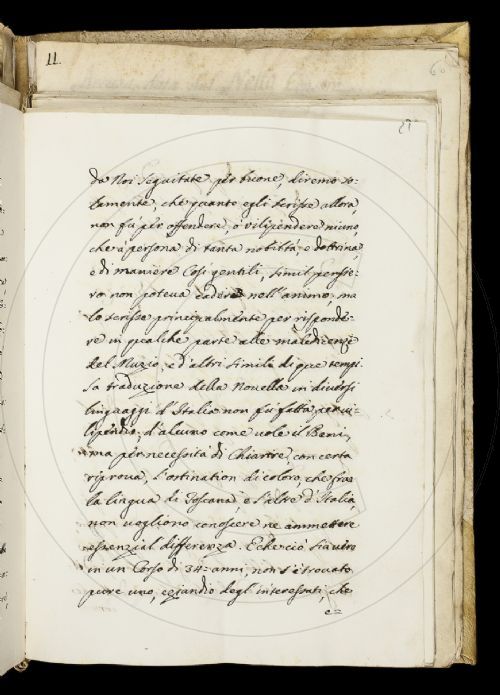 11.
60
21
da Noi seguitate per buone, diremo so=
lamente, che quanto egli scrisse allora,
non fù per offendere, ò vilipendere niuno,
che à persona di tanta nobiltà, e dottrina,
e di maniere così gentili, simil pensie=
ro non poteva cadere nell'animo; ma
lo scrisse principalmente per risponde=
re in qualche parte alle maledicenze
del Muzio, e d'altri simili di que tempi.
La traduzione della Novella in diversi
linguaggi d'Italia non fù fatta per vi=
lipendio d'alcuno come vole il Beni,
ma per necessità di Chiarire con certa
riprova, l'ostination di coloro, che fra
la lingua di Toscana, e l'altre d'Italia,
non vogliono conoscere ne ammettere
essenzial differenza. E che ciò sia vero
in un Corso di 34= anni, non s'è trovato
pure uno, eziandio degl'interessati, che
e=